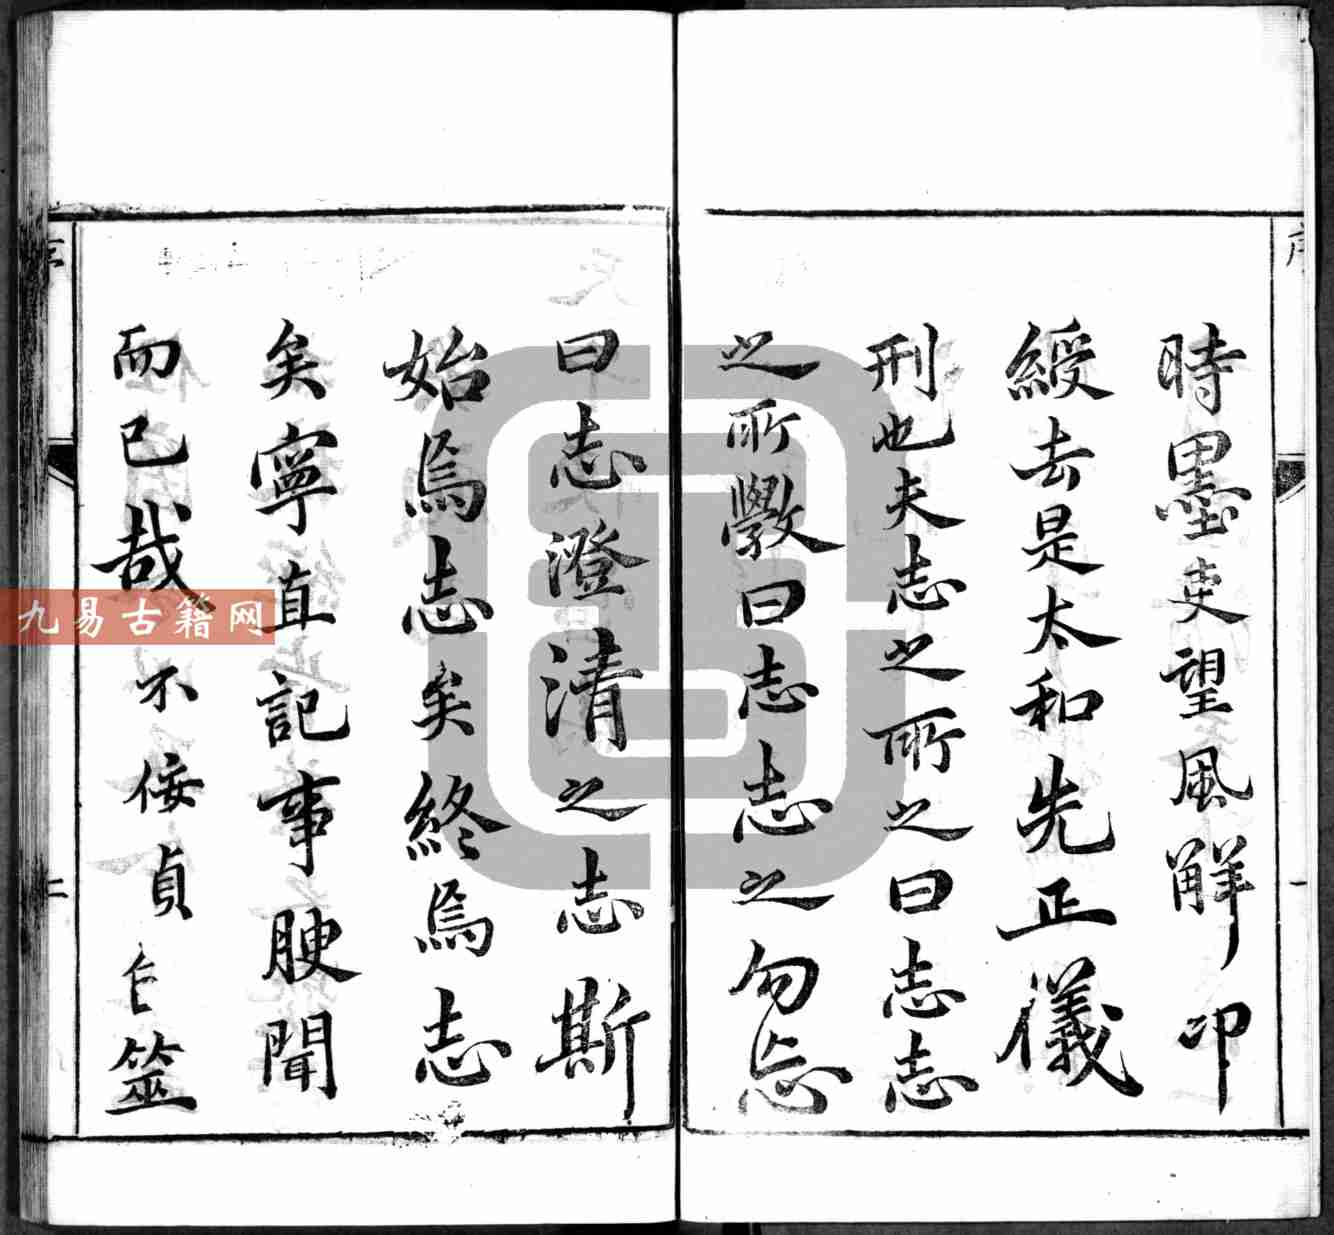 時墨吏望風解印
綬去是太和先正儀
刑也夫志之所之曰志志
之所斆曰志志之勿忘
曰志澄清之志斯
始焉志矣終焉志
矣寧直記事腴聞
而已哉不佞貞自筮
序
一
二
九易古籍网